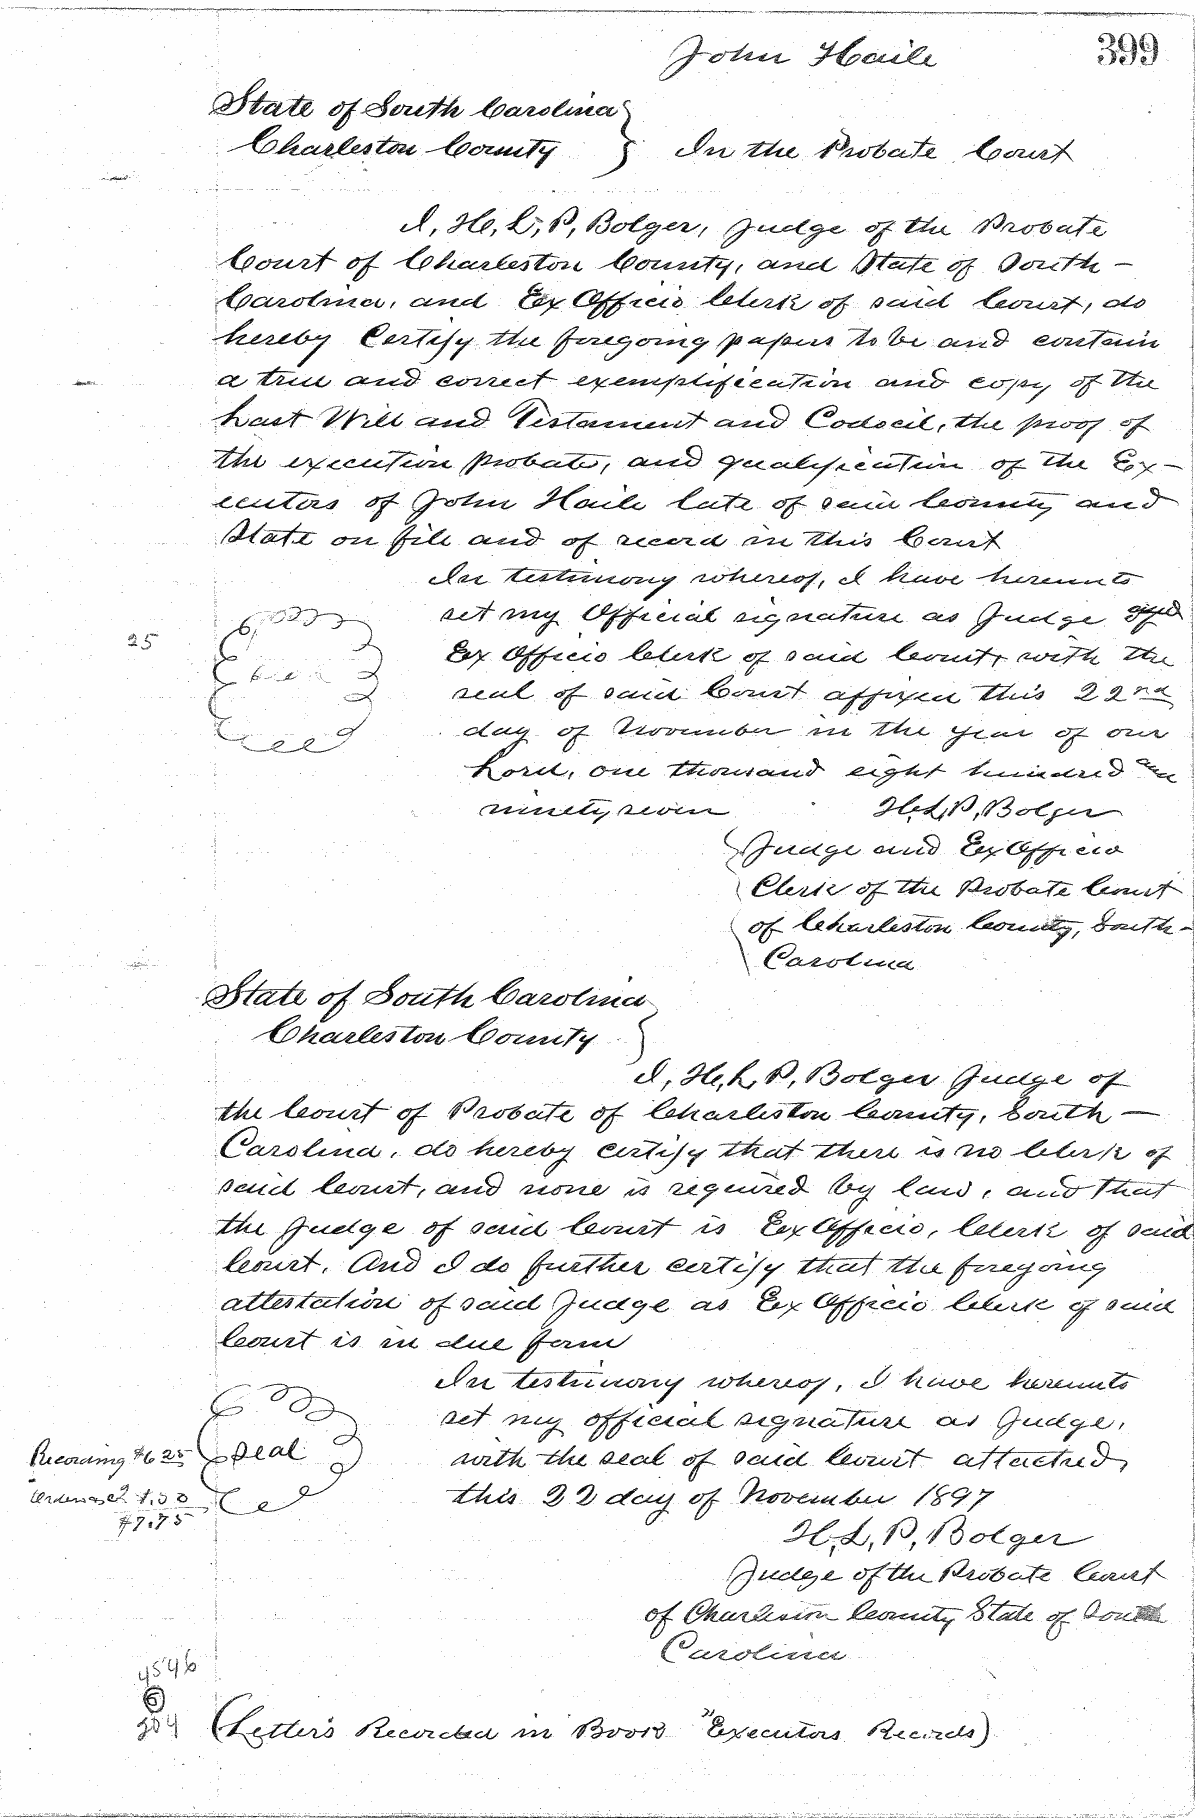 John Haile 399
State of South Carolina
Charleston County } In the Probate Court
I, H, L, P, Bolger, Judge of the Probate
Court of Charleston County, and State of South-
Carolina, and Ex Officio Clerk of said Court, do
hereby Certify the foregoing papers to be and contain
a true and correct exemplification and copy of the
Last Will and Testament and Codocil, the proof of
the execution probate, and qualification of the Ex-
ecutors of John Haile late of said County and
State on file and of record in this Court
In testimony whereof, I have hereunto
set my Official signature as Judge and
Ex Officio Clerk of said Court, with the
25
seal of said Court affixed this 22nd
day of November in the year of our
Lord, one thousand eight hundred and
ninety seven H.L.P, Bolger
Judge and Ex Officio
Clerk of the Probate Court
of Charleston County, South-
Carolina
State of South Carolina
Charleston County }
I, H, L, P, Bolger Judge of
the Court of Probate of Charleston County, South-
Carolina, do hereby certify that there is no Clerk of
said Court, and none is required by law, and that
the Judge of said Court is Ex Officio, Clerk of said
Court. And I do further certify that the foregoing
attestation of said Judge as Ex Officio Clerk of said
Court is in due form
In testimony whereof, I have hereunto
set my official signature as Judge,
Recording $6 25 Seal with the seal of said Court attached,
1.50 this 22 day of November 1897
$7.75
H, L, P, Bolger
Judge of the Probate Court
of Charleston County State of South
Carolina
4546
6
(Letters Recorded in Book "Executors Records)